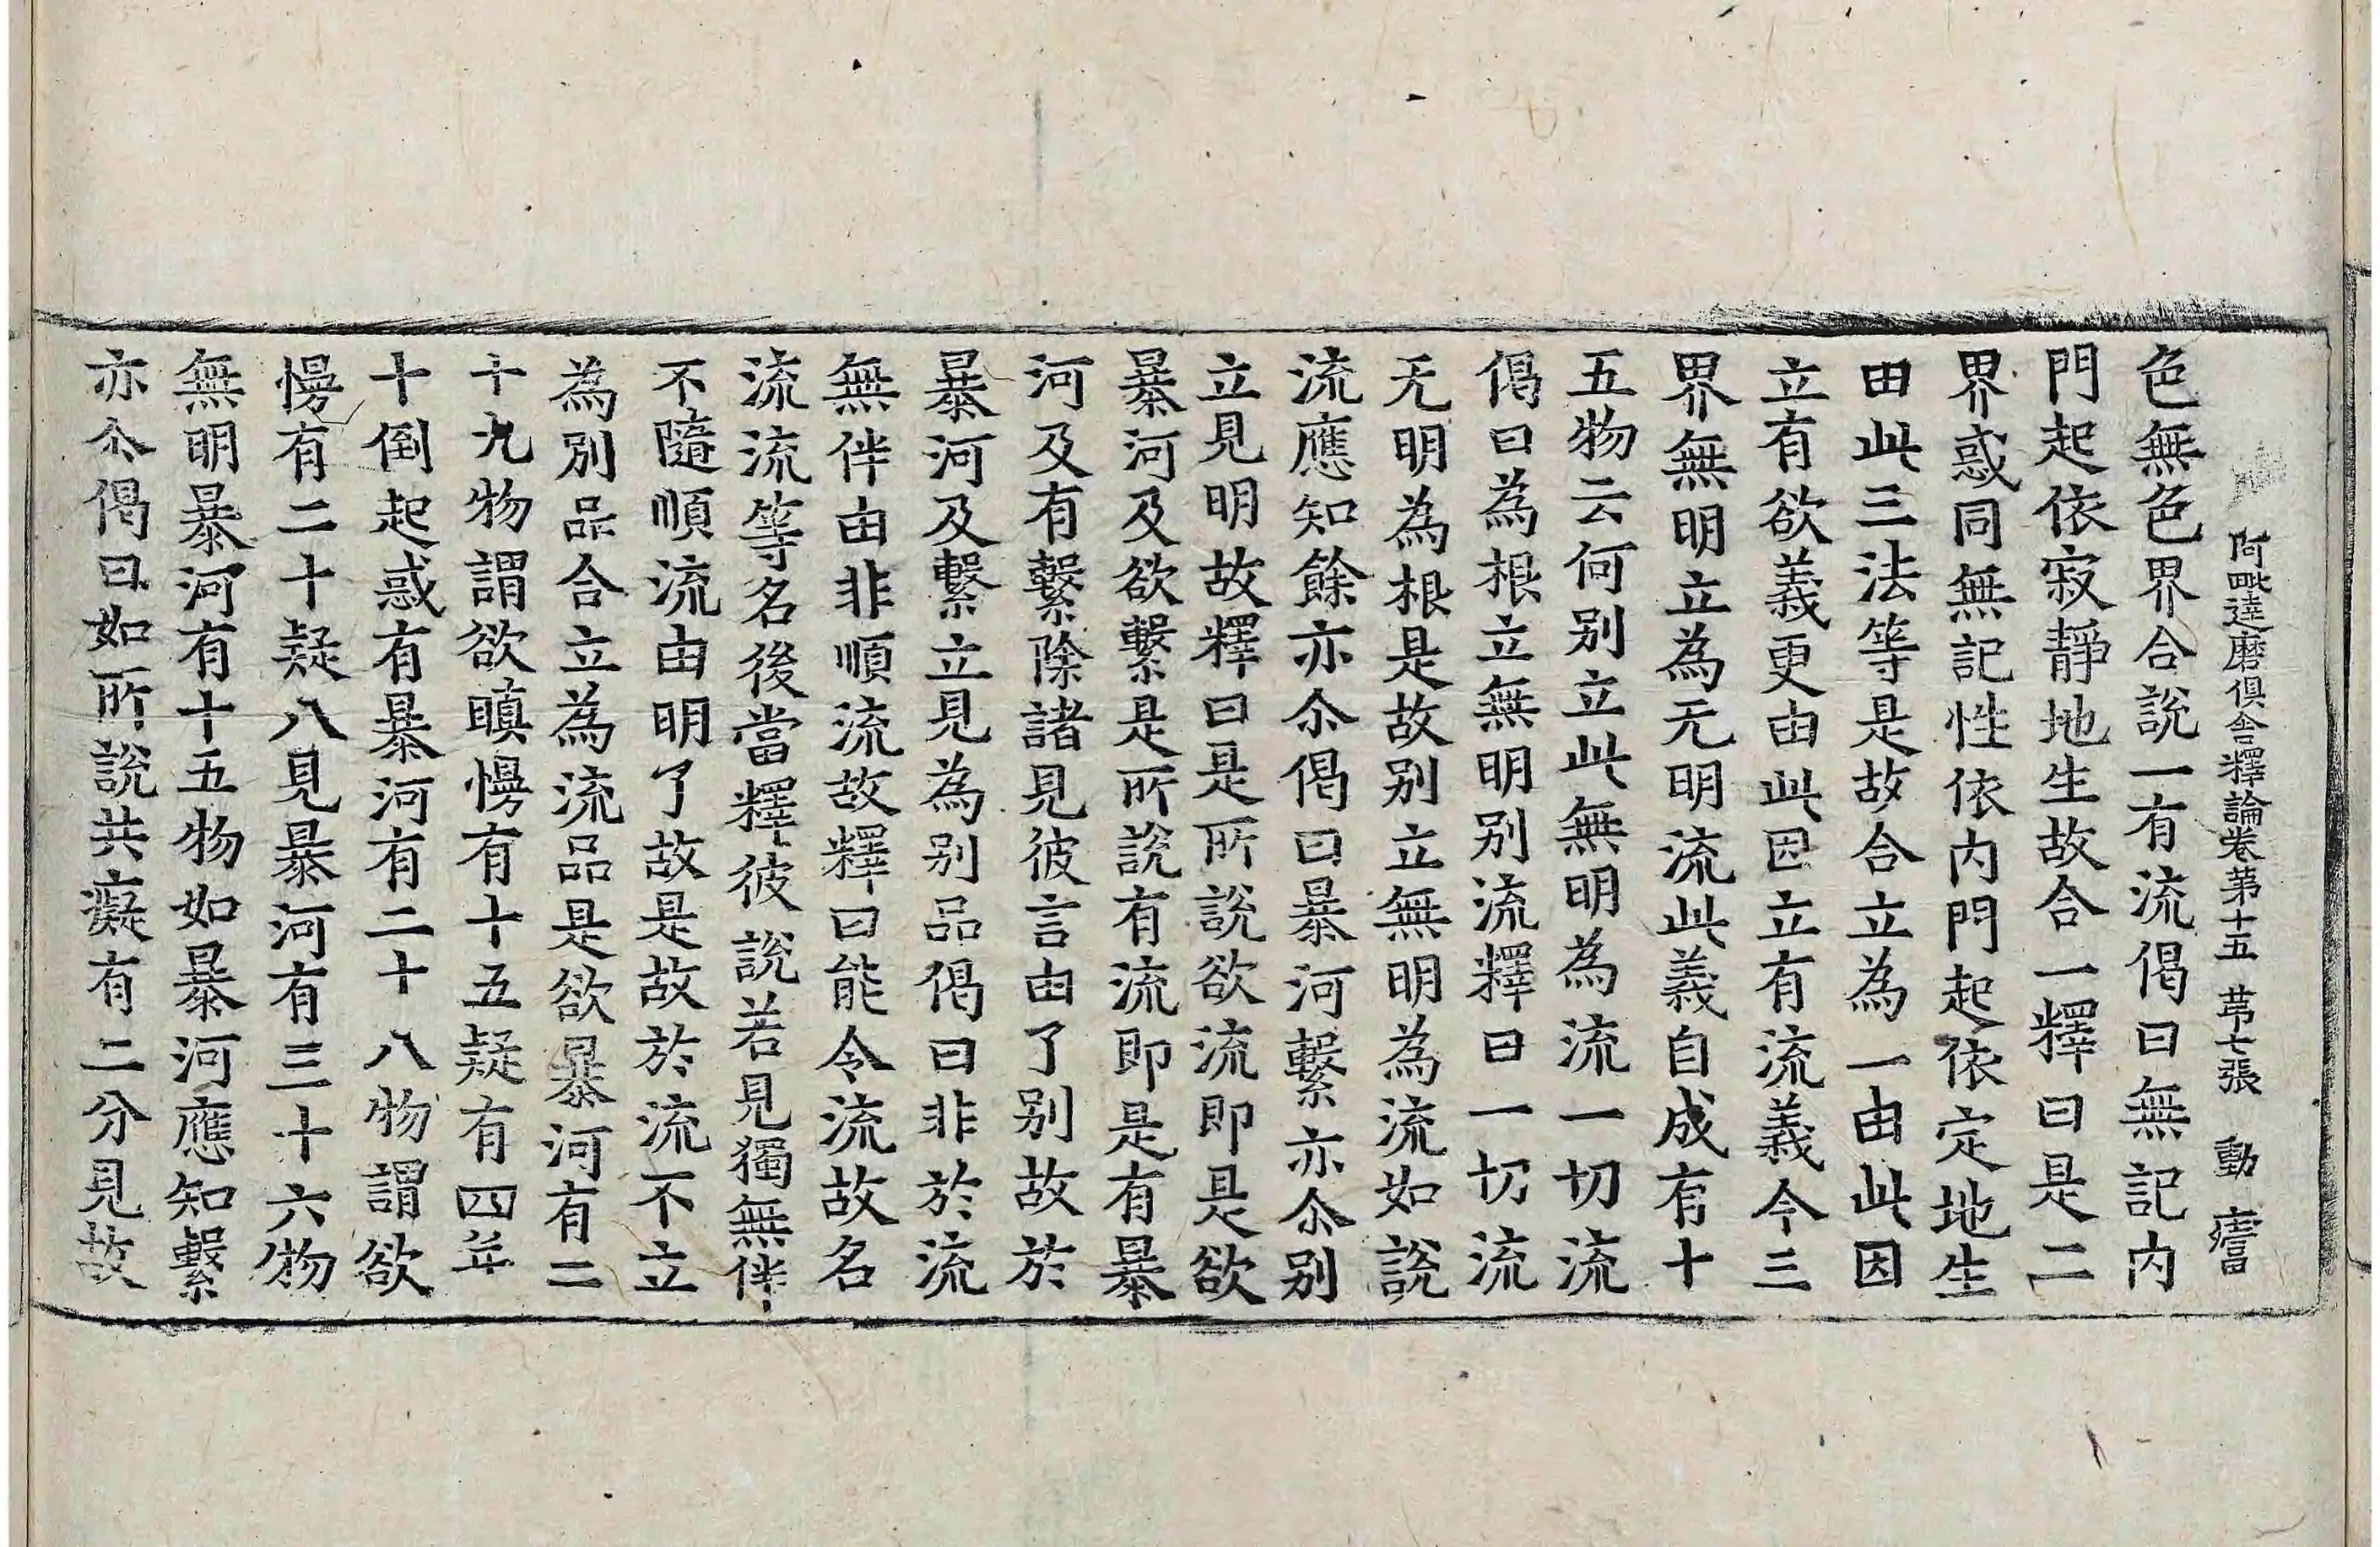 阿毗達磨俱舍釋論卷第十五 苐七張 動
色無色界合說一有流偈曰無記内
門起依寂靜地生故合一釋曰是二
界惑同無記性依内門起依定地生
由此三法等是故合立為一由此因
立有欲義更由此因立有流義今三
界無明立為无明流此義自成有十
五物云何別立此無明為流一切流
偈曰為根立無明别流釋曰一切流
无明為根是故别立無明為流如說
流應知餘亦尒偈曰暴河繫亦尒别
立見明故釋曰是所說欲流即是欲
暴河及欲繫是所說有流即是有暴
河及有繫除諸見彼言由了别故於
暴河及繫立見為别品偈曰非於流
無伴由非順流故釋曰能令流故名
流流等名後當釋彼說若見獨無伴
不隨順流由明了故是故於流不立
為別品合立為流品是欲暴河有二
十九物謂欲瞋慢有十五疑有四并
十倒起惑有暴河有二十八物謂欲
慢有二十疑八見暴河有三十六物
無明暴河有十五物如暴河應知繫
亦尒偈曰如所說共癡有二分見故